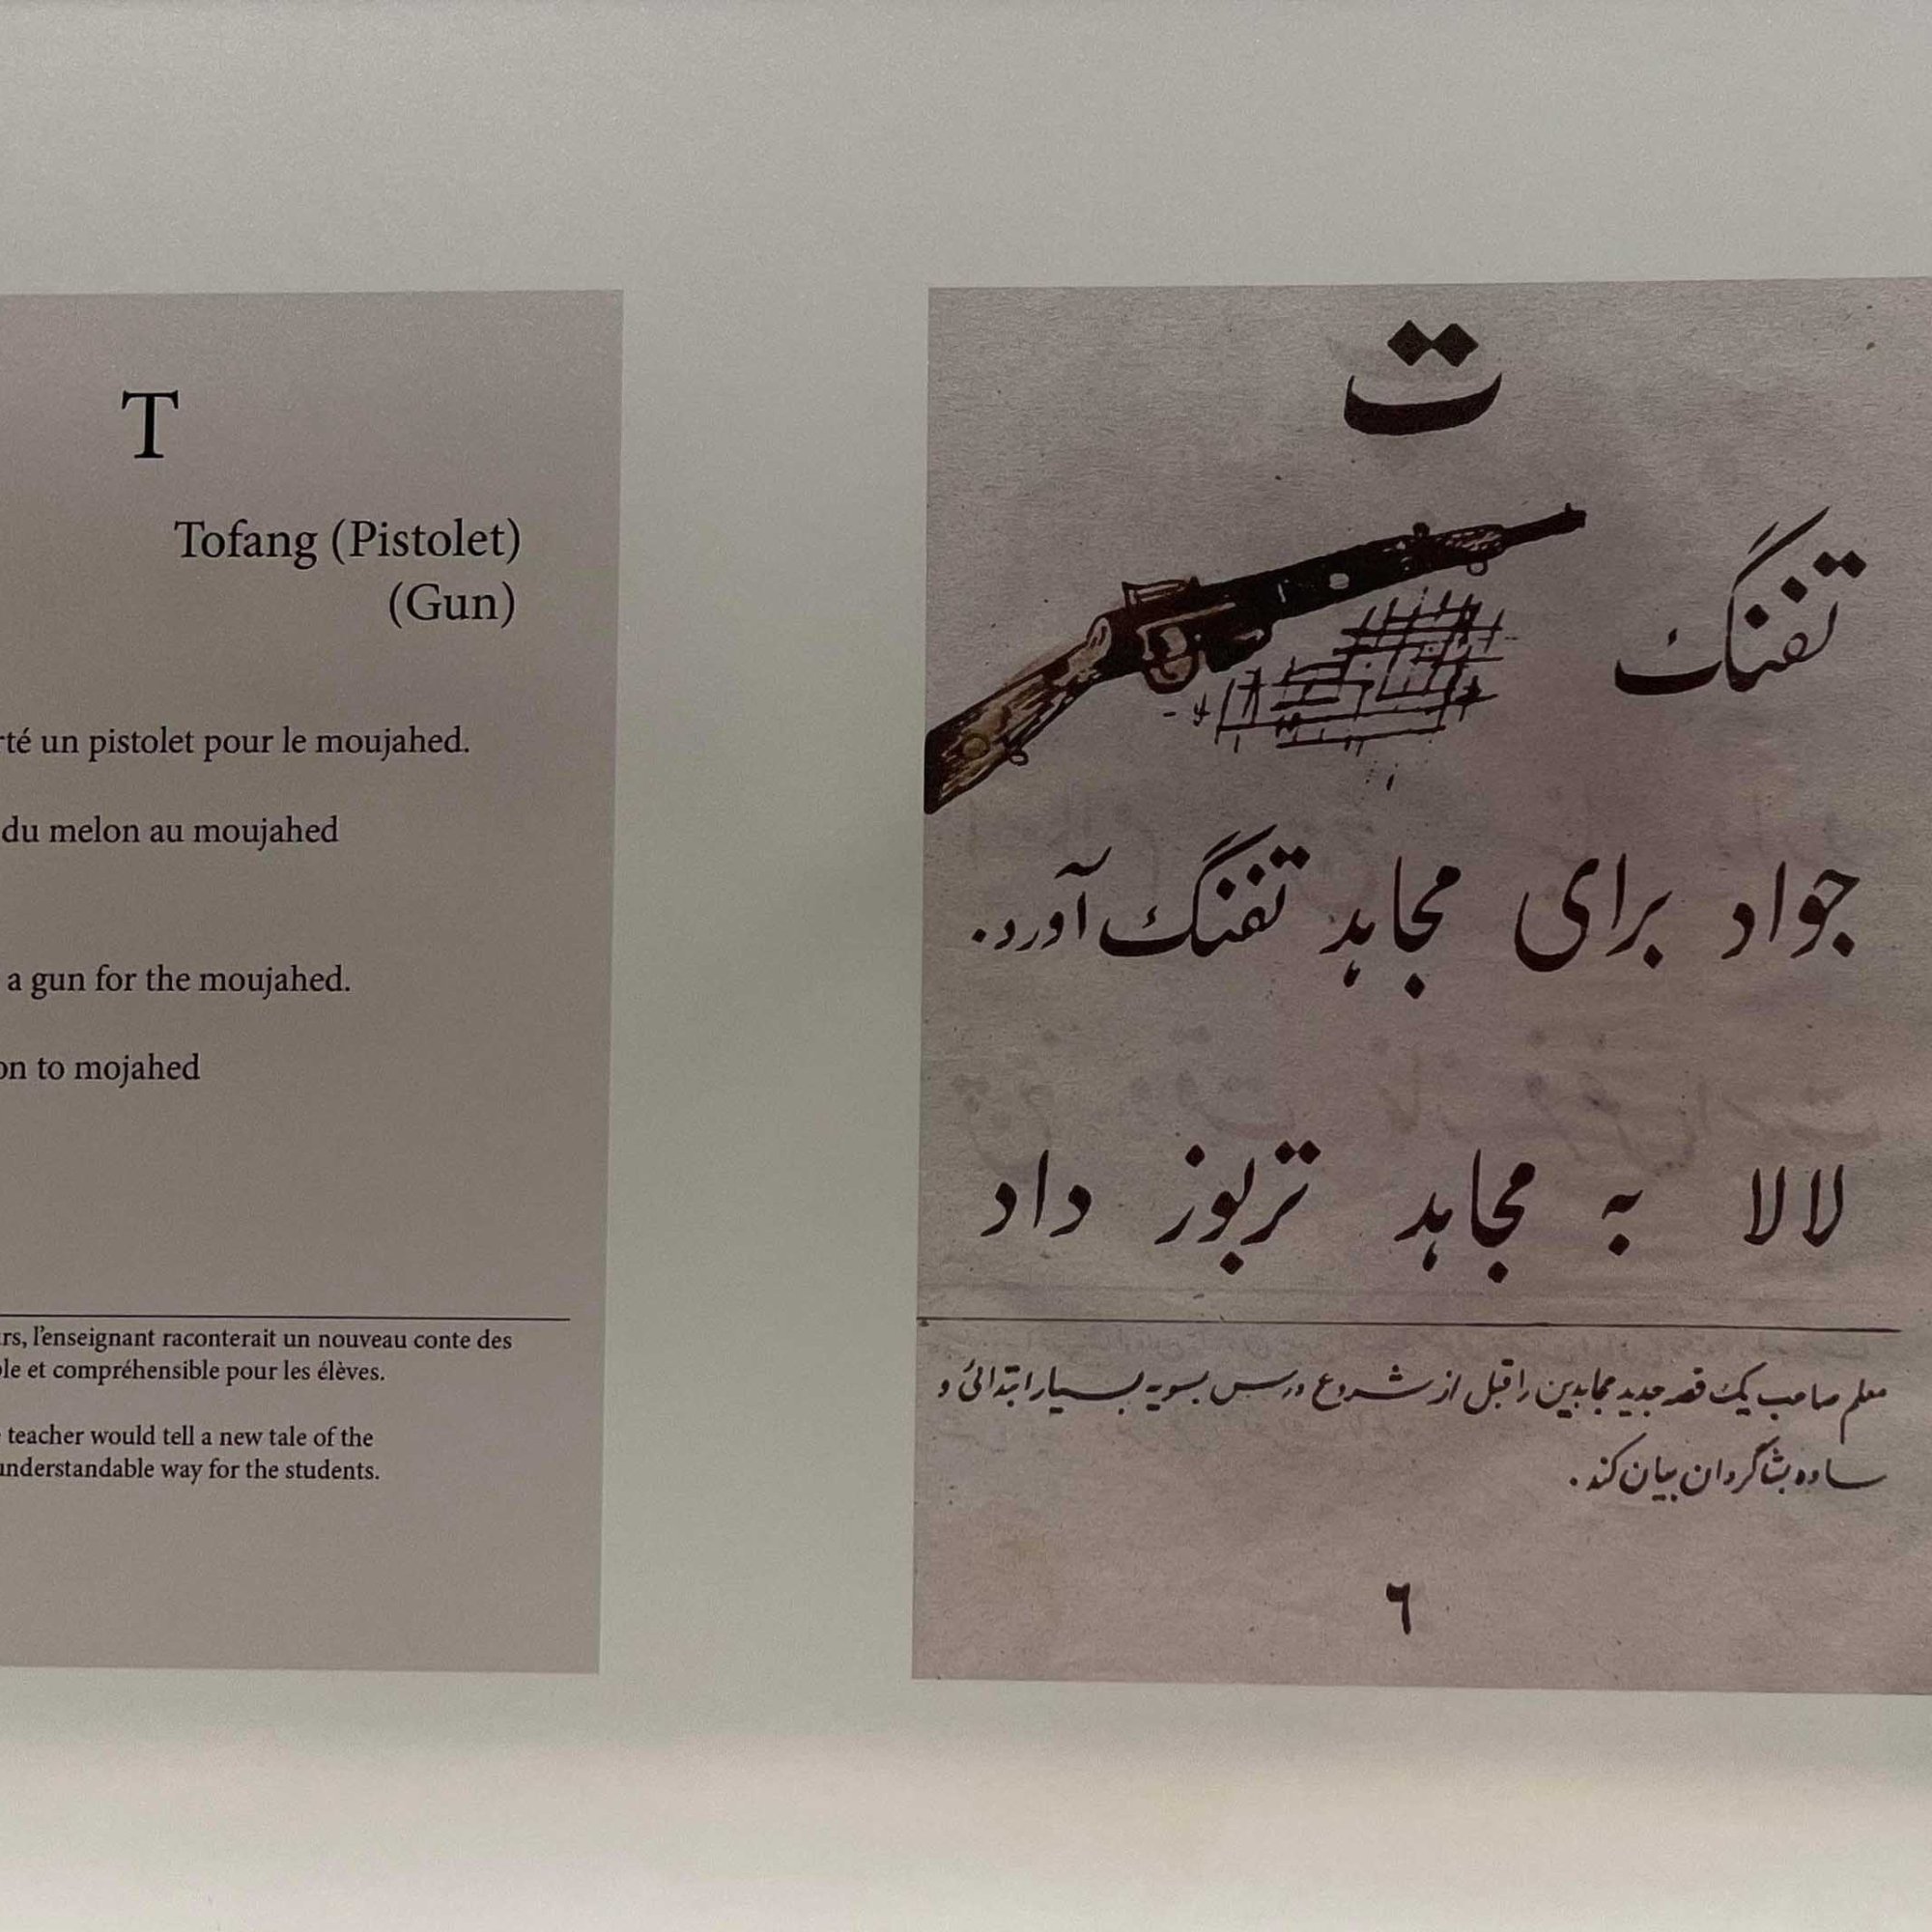 T
Tofang (Pistolet)
(Gun)
un pistolet pour le moujahed.
du melon au moujahed
a gun for the moujahed.
to mojahed
l'enseignant raconterait un nouveau conte des
et compréhensible pour les élèves.
teacher would tell a new tale of the
understandable way for the students.
ت
تفنگ
جواد برای مجاهد تفنگ آورد.
لالا به مجاهد تربوز داد
معلم صاحب یک قصه جدید مجاهدین را قبل از شروع درس بسویه بسیار ابتدائی و
ساده بشاگردان بیان کند.
٦